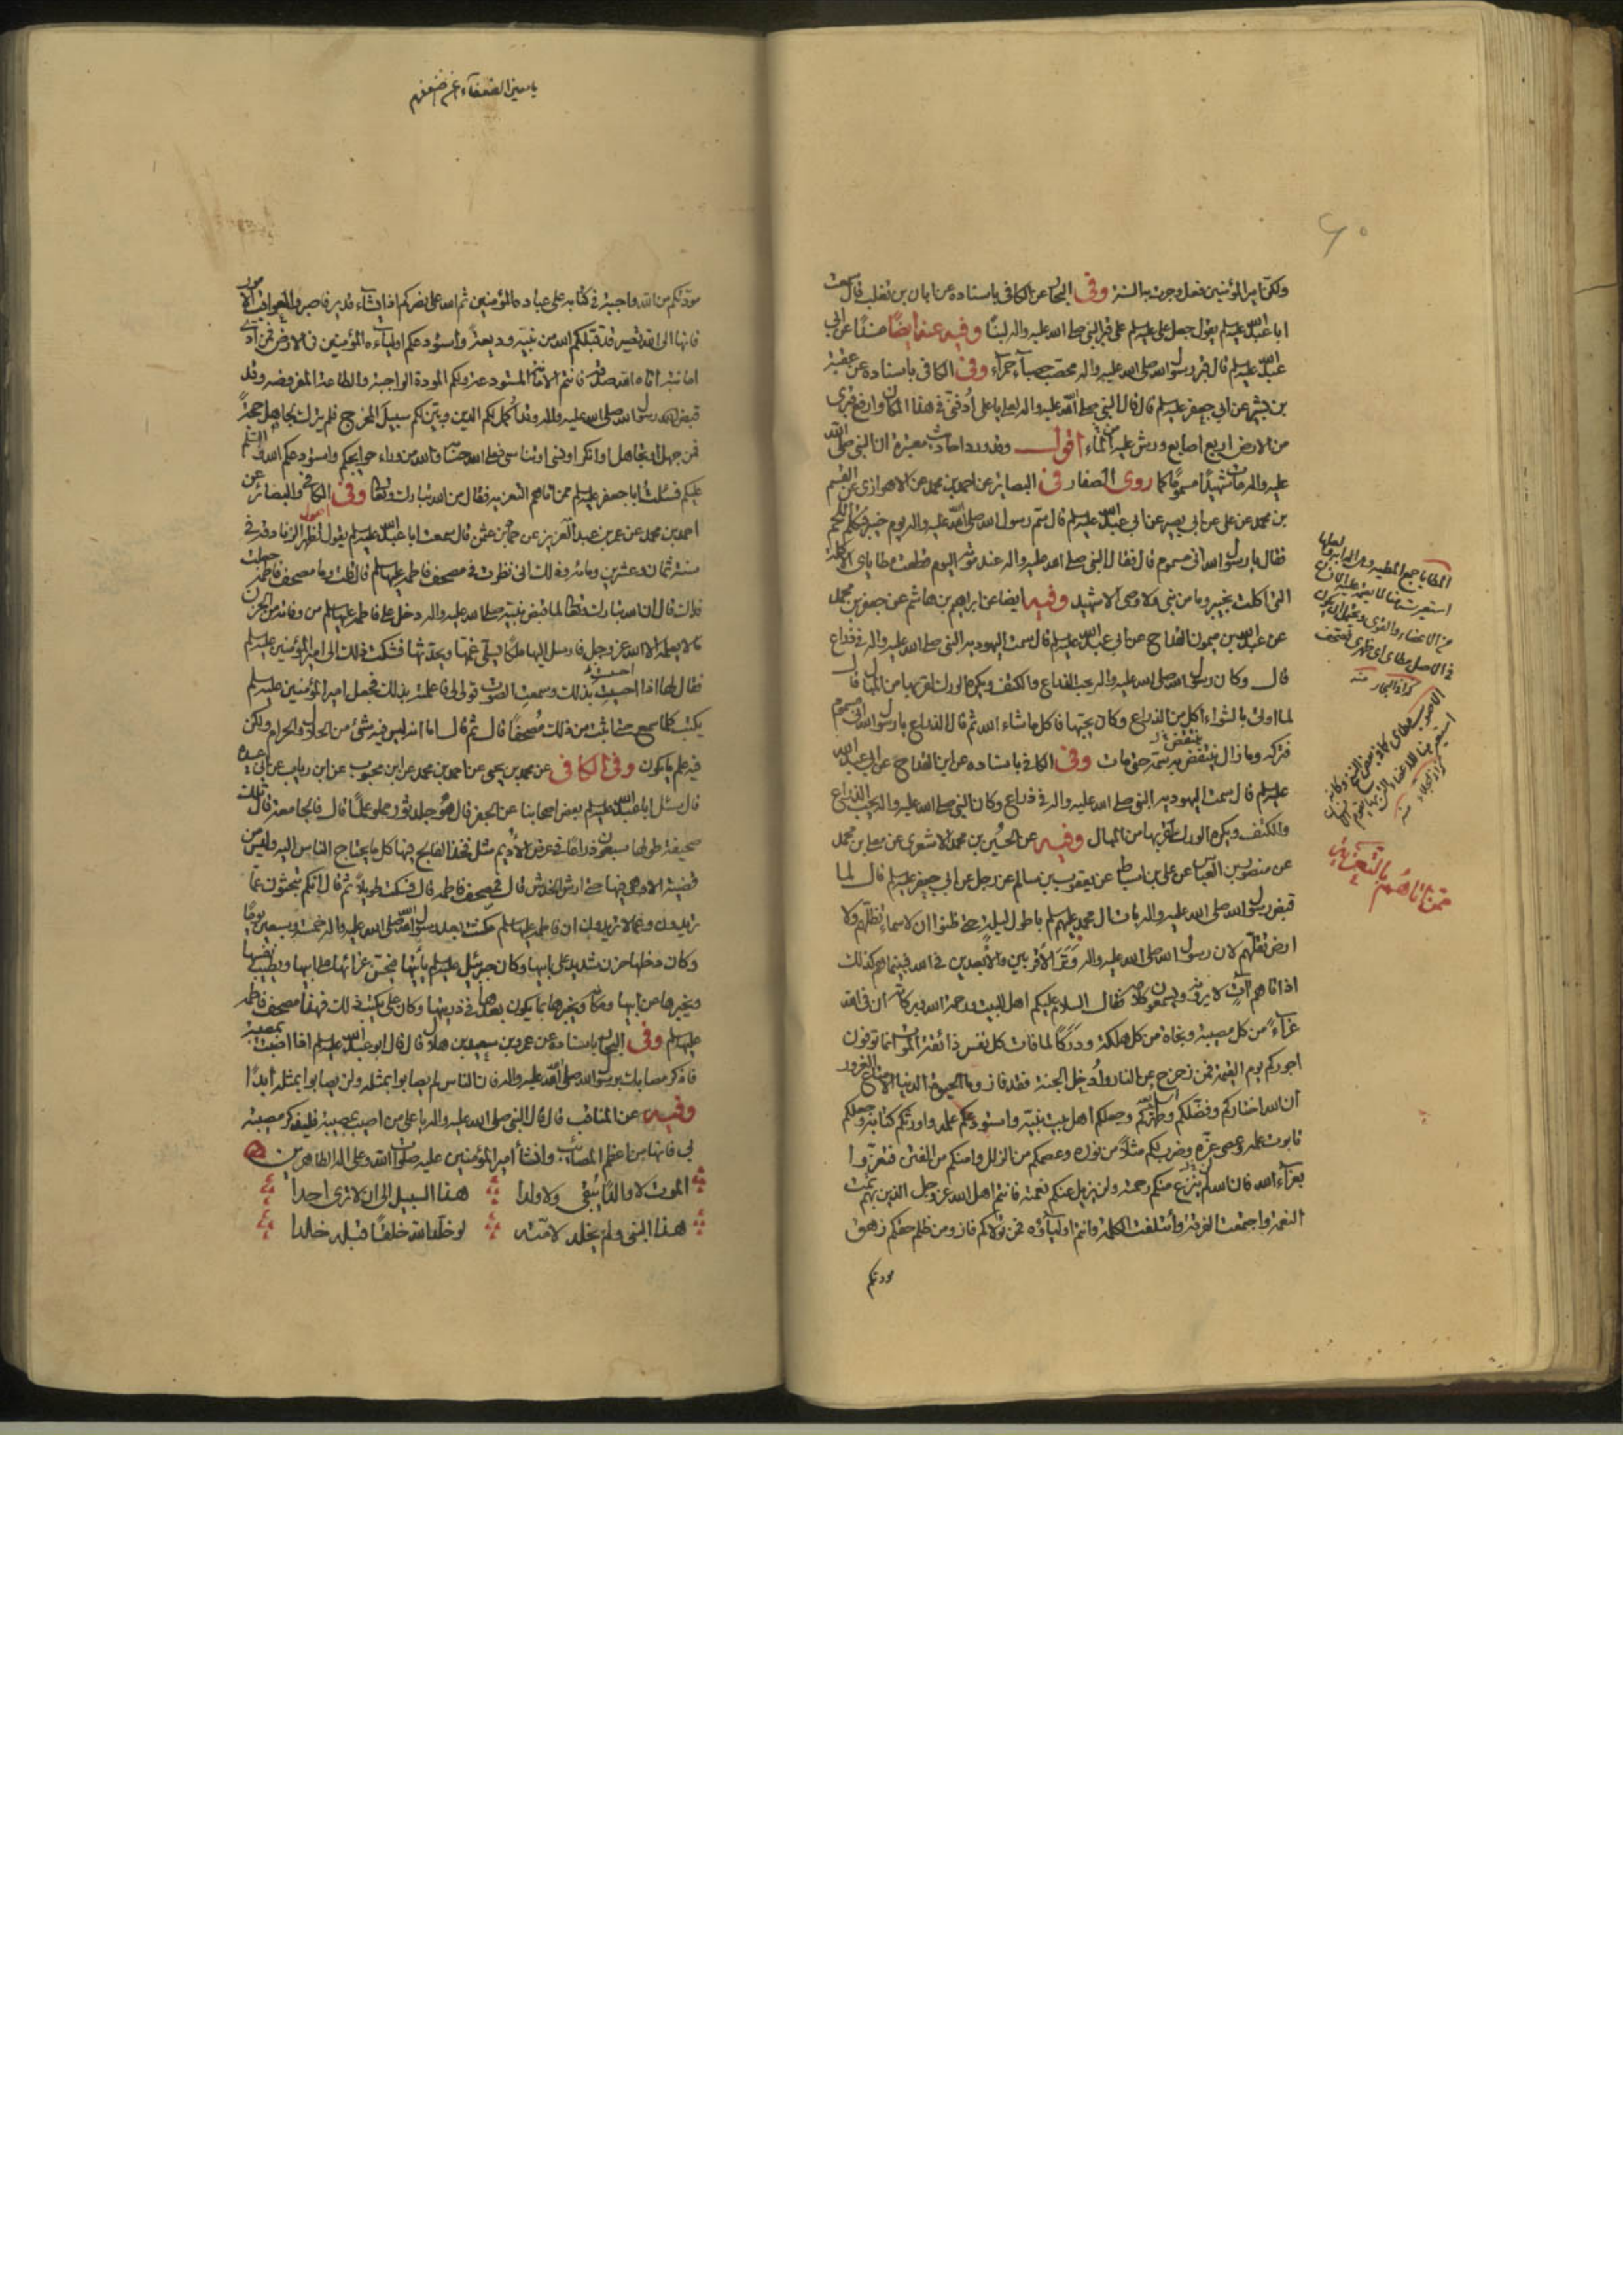 ولكن امير المؤمنين فعل وجرت به السنة وفى البحار عن الكافى باسناده عن ابان بن تغلب قال سمعت
ابا عبد الله عليه السلم يقول جعل على عليه السلم على قبر النبى صلى الله عليه واله لبنا وفيه عنه ايضا عن ابى
عبد الله عليه السلم قال قبر رسول الله صلى الله عليه واله محصب حصباء حمراء وفى الكافى باسناده عن عقبة
بن بشير عن ابى جعفر عليه السلم قال قال النبى صلى الله عليه واله لعلى يا على ادفنى فى هذا المكان وارفع قبرى
من الارض اربع اصابع ورش عليه من الماء اقول وقد ورد احاديث معتبرة ان النبى صلى الله
عليه واله مات شهيدا مسموما كما روى الصفار فى البصائر عن احمد بن محمد عن الاهوازى عن القسم
بن محمد عن على عن ابى بصير عن ابى عبد الله عليه السلم قال سم رسول الله صلى الله عليه واله يوم خيبر فتكلم اللحم
فقال يا رسول الله انى مسموم قال فقال النبى صلى الله عليه واله عند موته اليوم قطعت مطاياى الاكلة
التى اكلت بخيبر وما من نبى ولا وصى الا شهيد وفيه ايضا عن ابراهيم بن هاشم عن جعفر بن محمد
عن عبد الله بن ميمون القداح عن ابى عبد الله عليه السلم قال سمت اليهودية النبى صلى الله عليه واله فى ذراع
قال وكان رسول الله صلى الله عليه واله يحب الذراع والكتف ويكره الورك لقربها من المبال قال
لما اوتى بالشواء اكل من الذراع وكان يحبها فاكل ما شاء الله ثم قال الذراع يا رسول الله انى مسموم
فتركه وما زال ينتقض به سمه حتى مات وفى الكافى باسناده عن ابن القداح عن ابى عبد الله
عليه السلم قال سمت اليهودية النبى صلى الله عليه واله فى ذراع وكان النبى صلى الله عليه واله يحب الذراع
والكتف ويكره الورك لقربها من المبال وفيه عن الحسين بن محمد الاشعرى عن معلى بن محمد
عن منصور بن العباس عن على بن اسباط عن يعقوب بن سالم عن رجل عن ابى جعفر عليه السلم قال لما
قبض رسول الله صلى الله عليه واله بات ال محمد عليهم السلم باطول ليلة حتى ظنوا ان لا سماء تظلهم ولا
ارض تقلهم لان رسول الله صلى الله عليه واله وتر الاقربين والابعدين فى الله فبينما هم كذلك
اذ اتاهم ات لا يرونه ويسمعون كلامه فقال السلام عليكم اهل البيت ورحمة الله وبركاته ان فى الله
عزاء من كل مصيبة ونجاة من كل هلكة ودركا لما فات كل نفس ذائقة الموت انما توفون
اجوركم يوم القيمة فمن زحزح عن النار وادخل الجنة فقد فاز وما الحيوة الدنيا الا متاع الغرور
ان الله اختاركم وفضلكم وطهركم وجعلكم اهل بيت نبيه واستودعكم علمه واورثكم كتابه وجعلكم
تابوت علمه وعصى عزه وضرب لكم مثلا من نوره وعصمكم من الزلل وامنكم من الفتن فتعزوا
بعزاء الله فان الله لم ينزع منكم رحمته ولن يزيل عنكم نعمته فانتم اهل الله عز وجل الذين بهم تمت
النعمة واجتمعت الفرقة وائتلفت الكلمة وانتم اولياؤه فمن تولاكم فاز ومن ظلم حقكم زهق
مودتكم
ممن اتاهم بالتعزية
يا معين الضعفاء
مودتكم من الله واجبة فى كتابه على عباده المؤمنين ثم الله على نصركم اذا يشاء قدير فاصبروا لعواقب الامور
فانها الى الله تصير قد قبلكم الله من نبيه وديعة واستودعكم اولياءه المؤمنين فى الارض فمن ادى
امانته اتاه الله صدقه فانتم الامانة المستودعة ولكم المودة الواجبة والطاعة المفروضة وقد
قبض الله رسول الله صلى الله عليه واله وقد اكمل لكم الدين وبين لكم سبيل المخرج فلم يترك لجاهل حجة
فمن جهل او تجاهل او انكر او نسى او تناسى فعلى الله حسابه والله من وراء حوايجكم واستودعكم الله والسلم
عليكم فسئلت ابا جعفر عليه السلم ممن اتاهم التعزية فقال من الله تبارك وتعالى وفى الكافى والبصائر عن
احمد بن محمد عن عمر بن عبد العزيز عن حماد بن عثمن قال سمعت ابا عبد الله عليه السلم يقول تظهر الزنادقة فى
سنة ثمان وعشرين ومائة وذلك انى نظرت فى مصحف فاطمة عليها السلم قال قلت وما مصحف فاطمة
قال ان الله تبارك وتعالى لما قبض نبيه صلى الله عليه واله دخل على فاطمة عليها السلم من وفاته من الحزن
ما لا يعلمه الا الله عز وجل فارسل اليها ملكا يسلى غمها ويحدثها فشكت ذلك الى امير المؤمنين عليه السلم
فقال لها اذا احسست بذلك وسمعت الصوت قولى لى فاعلمته بذلك فجعل امير المؤمنين عليه السلم
يكتب كلما سمع حتى اثبت من ذلك مصحفا قال ثم قال اما انه ليس فيه شئ من الحلال والحرام ولكن
فيه علم ما يكون وفى الكافى عن محمد بن يحيى عن احمد بن محمد عن ابن محبوب عن ابن رياب عن ابى عبيدة
قال سئل ابا عبد الله عليه السلم بعض اصحابنا عن الجفر قال هو جلد ثور مملو علما قال فالجامعة قال تلك
صحيفة طولها سبعون ذراعا فى عرض الاديم مثل فخذ الفالج فيها كل ما يحتاج الناس اليه وليس من
قضية الا وهى فيها حتى ارش الخدش قال فمصحف فاطمة قال فسكت طويلا ثم قال انكم لتبحثون عما
تريدون وعما لا تريدون ان فاطمة عليها السلم مكثت بعد رسول الله صلى الله عليه واله خمسة وسبعين يوما
وكان دخلها حزن شديد على ابيها وكان جبرئيل عليه السلم يأتيها فيحسن عزائها على ابيها ويطيب نفسها
ويخبرها عن ابيها ومكانه ويخبرها بما يكون بعدها فى ذريتها وكان على يكتب ذلك فهذا مصحف فاطمة
عليها السلم وفى البحار باسناده عن عمرو بن سعيد بن هلال قال قال ابو عبد الله عليه السلم اذا اصبت بمصيبة
فاذكر مصابك برسول الله صلى الله عليه واله فان الناس لم يصابوا بمثله ولن يصابوا بمثله ابدا
وفيه عن المناقب قال قال النبى صلى الله عليه واله يا على من اصيب بمصيبة فليذكر مصيبته
بى فانها من اعظم المصائب وانشأ امير المؤمنين عليه صلوات الله وعلى اله الطاهرين
الموت لا والدا يبقى ولا ولدا هذا السبيل الى ان لا ترى احدا
هذا النبى ولم يخلد لامته لو خلد الله خلقا قبله خلدا